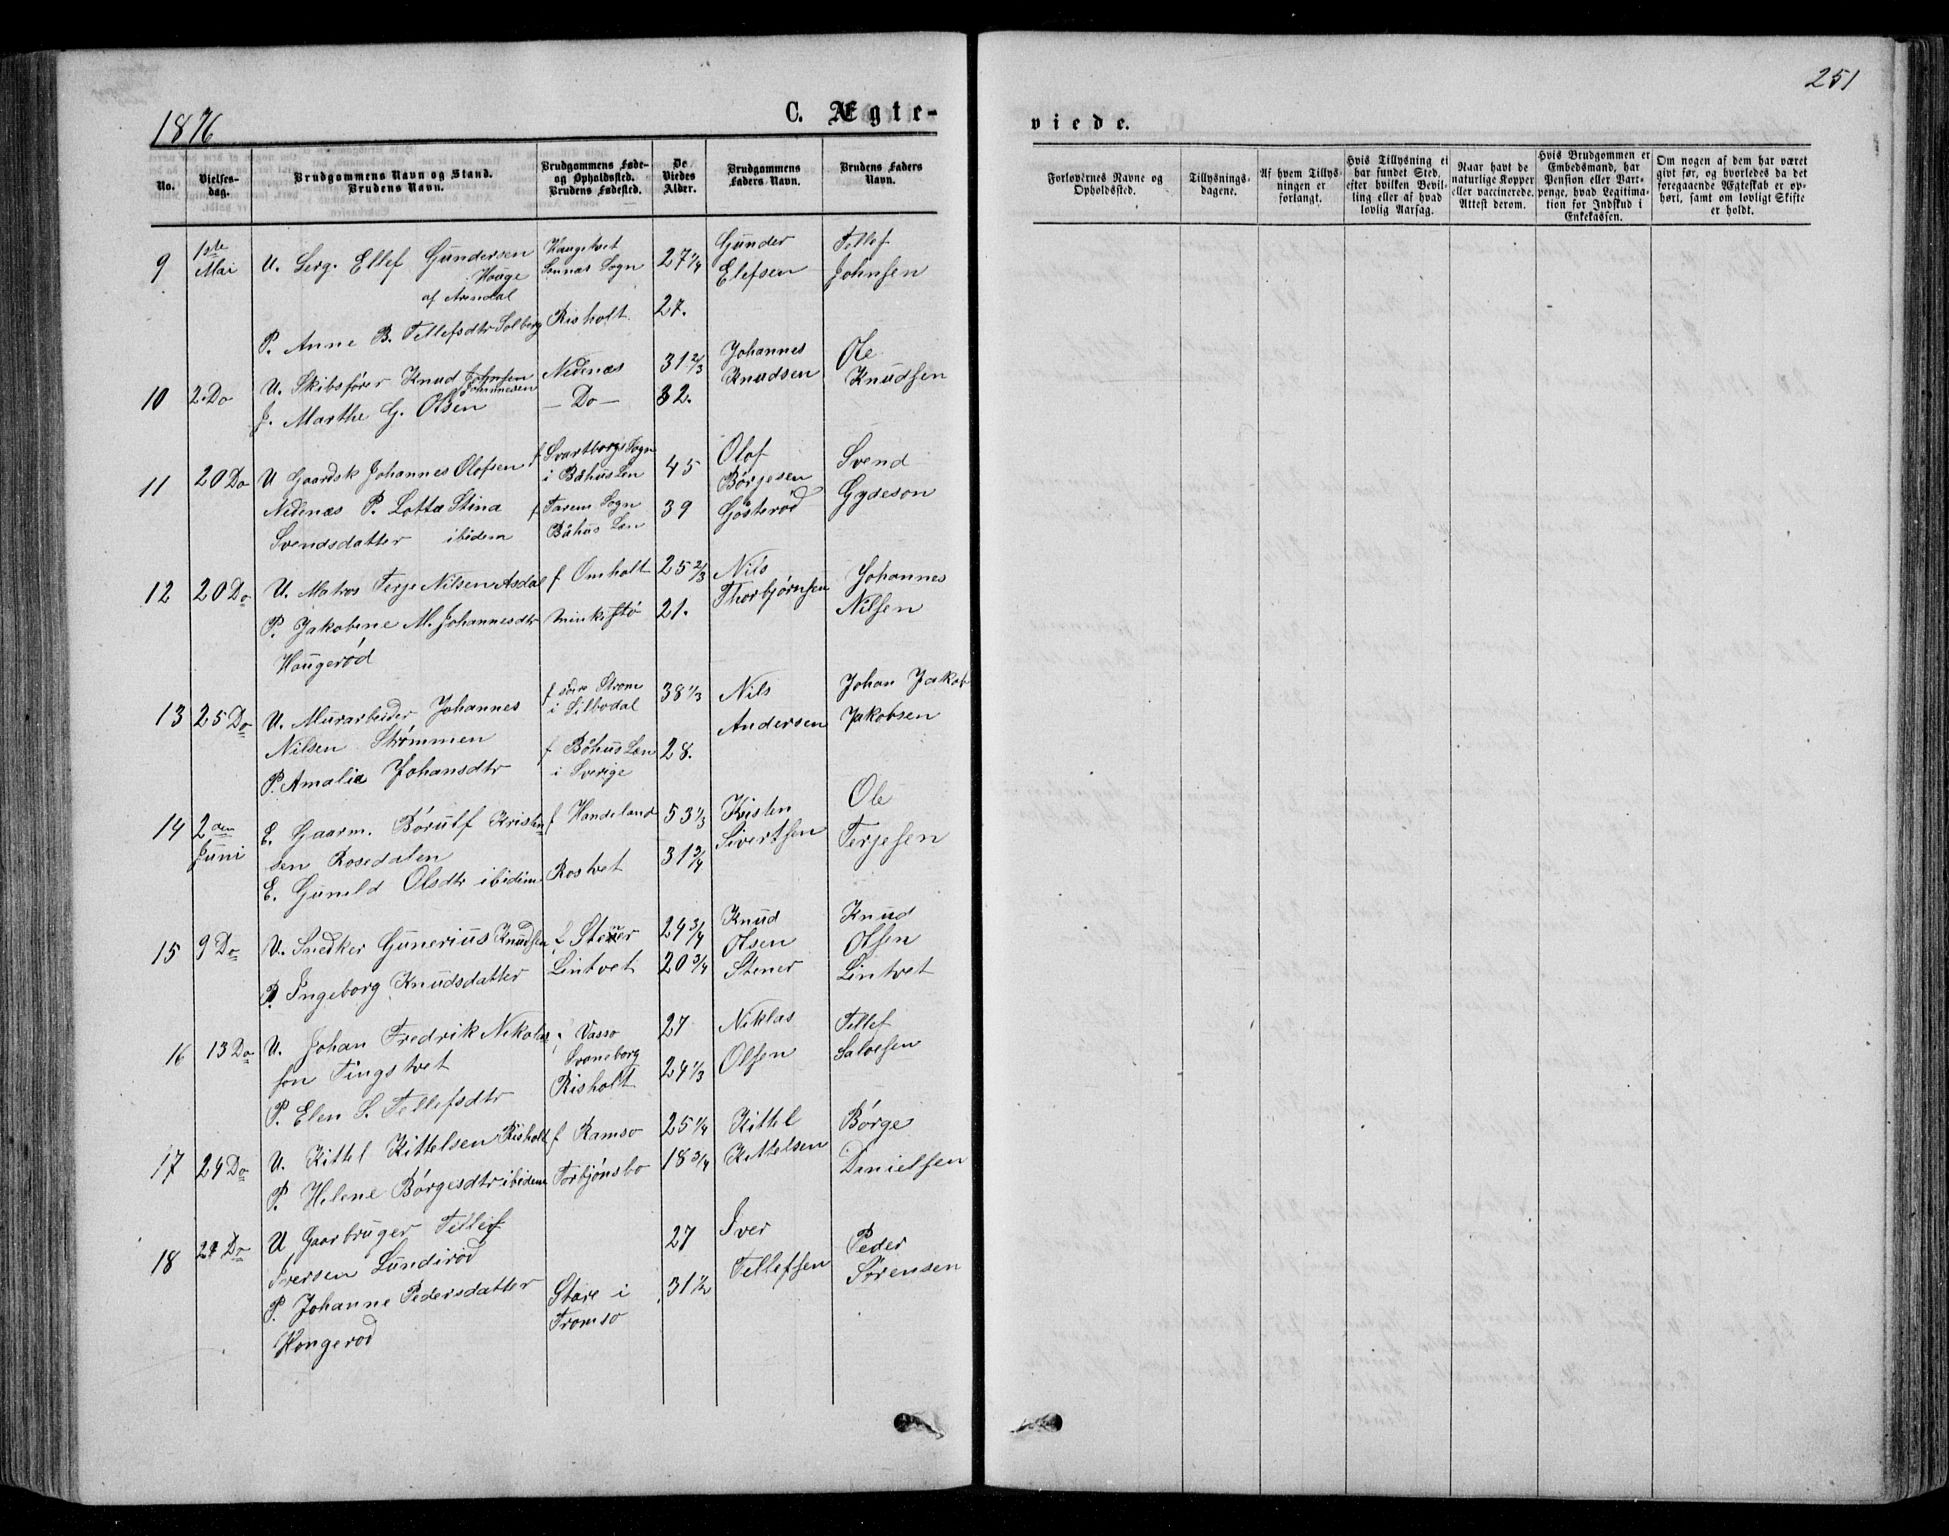 1876
C. Ægte-
viede.
251
No.
Vielses-
dag.
Brudgommens Navn og Stand.
Brudens Navn.
Brudgommens Føde-
og Opholdssted.
Brudens Fødested.
De
Viedes
Alder.
Brudgommens
Faders Navn.
Brudens Faders
Navn.
Forlovernes Navne og
Opholdssted.
Tillysnings-
dagene.
Af hvem Tillys-
ningen er
forlangt.
Hvis Tillysning ei
har fundet Sted,
efter hvilken Bevil-
ling eller af hvad
lovlig Aarsag.
Naar havt de
naturlige Kopper
eller vaccinerede.
Attest derom.
Hvis Brudgommen er
Embedsmand, har
Pension eller Vart-
penge, hvad Legitima-
tion for Indskud i
Enkekassen.
Om nogen af dem har været
givt før, og hvorledes da det
foregaaende Ægteskab er op-
hørt, samt om lovligt Skifte
er holdt.
9 1ste Mai U. Serg. Ellef Gundersen Houge af Arendal Sognas Sogn 27 1/4 Gunder Elefsen Tellef Johnsen
P. Anne B. Tellefsdtr Solberg Risholt 27.
10 2. Do U. Skibsfører Knud Johnsen Johannesen Nedenæs 31 2/3 Johannes Knudsen Ole Knudsen
J. Marthe G. Olsen – Do – 32.
11 20 Do U Gaardsk Johannes Olofsen f Svartborgs Sogn i Båhus Len 45 Olof Börjesen Gösteröd Svend Gydeson
Nedenæs P. Lotta Stina f Tarem Sogn Båhus Len 39
Svendsdatter ibidem
12 20 Do U. Matros Terje Nilsen Asdal f Omholt 25 2/3 Nils Thorbjørnsen Johannes Nilsen
P. Jakobine M. Johannesdtr 21.
Hougerød
13 25 Do U. Murarbeider Johannes f i Silbodal 38 1/3 Nils Andersen Johan Jakob Jakobsen
Nilsen Strømmen
P. Amalia Johansdtr f Båhus Len i Sverige 28.
14 2den Juni E. Gaarm. Börulf Kristen f Handeland 53 1/3 Kristen Sivertsen Ole Terjesen
sen Rosedalen
E. Gunild Olsdtr ibidem Rostvet 31 3/4
15 9 Do U. Snedker Gunerius Knudsen Stener 24 3/4 Knud Olsen Stener Knud Olsen Lintvet
P. Ingeborg Knudsdatter Lintvet 20 3/4
16 13 Do U. Johan Fredrik Nikolas Vasso Svaneborg 27 Niklas Olsen Tellef Salvesen
son Tingstvet
P. Elen S. Tellefsdtr Risholt 24 1/3
17 24 Do U. Kittel Kittelsen Risholt f Ramso 25 1/4 Kittel Kittelsen Børge Danielsen
P. Helene Børgesdtr ibidem Torbjönsbo 18 3/4
18 24 Do U Gaarbruger Tellef 27 Iver Tellefsen Peder Sørensen
Iversen Lundirød
P. Johanne Pedersdatter Store i Tromsø 31 1/2
Kongerød